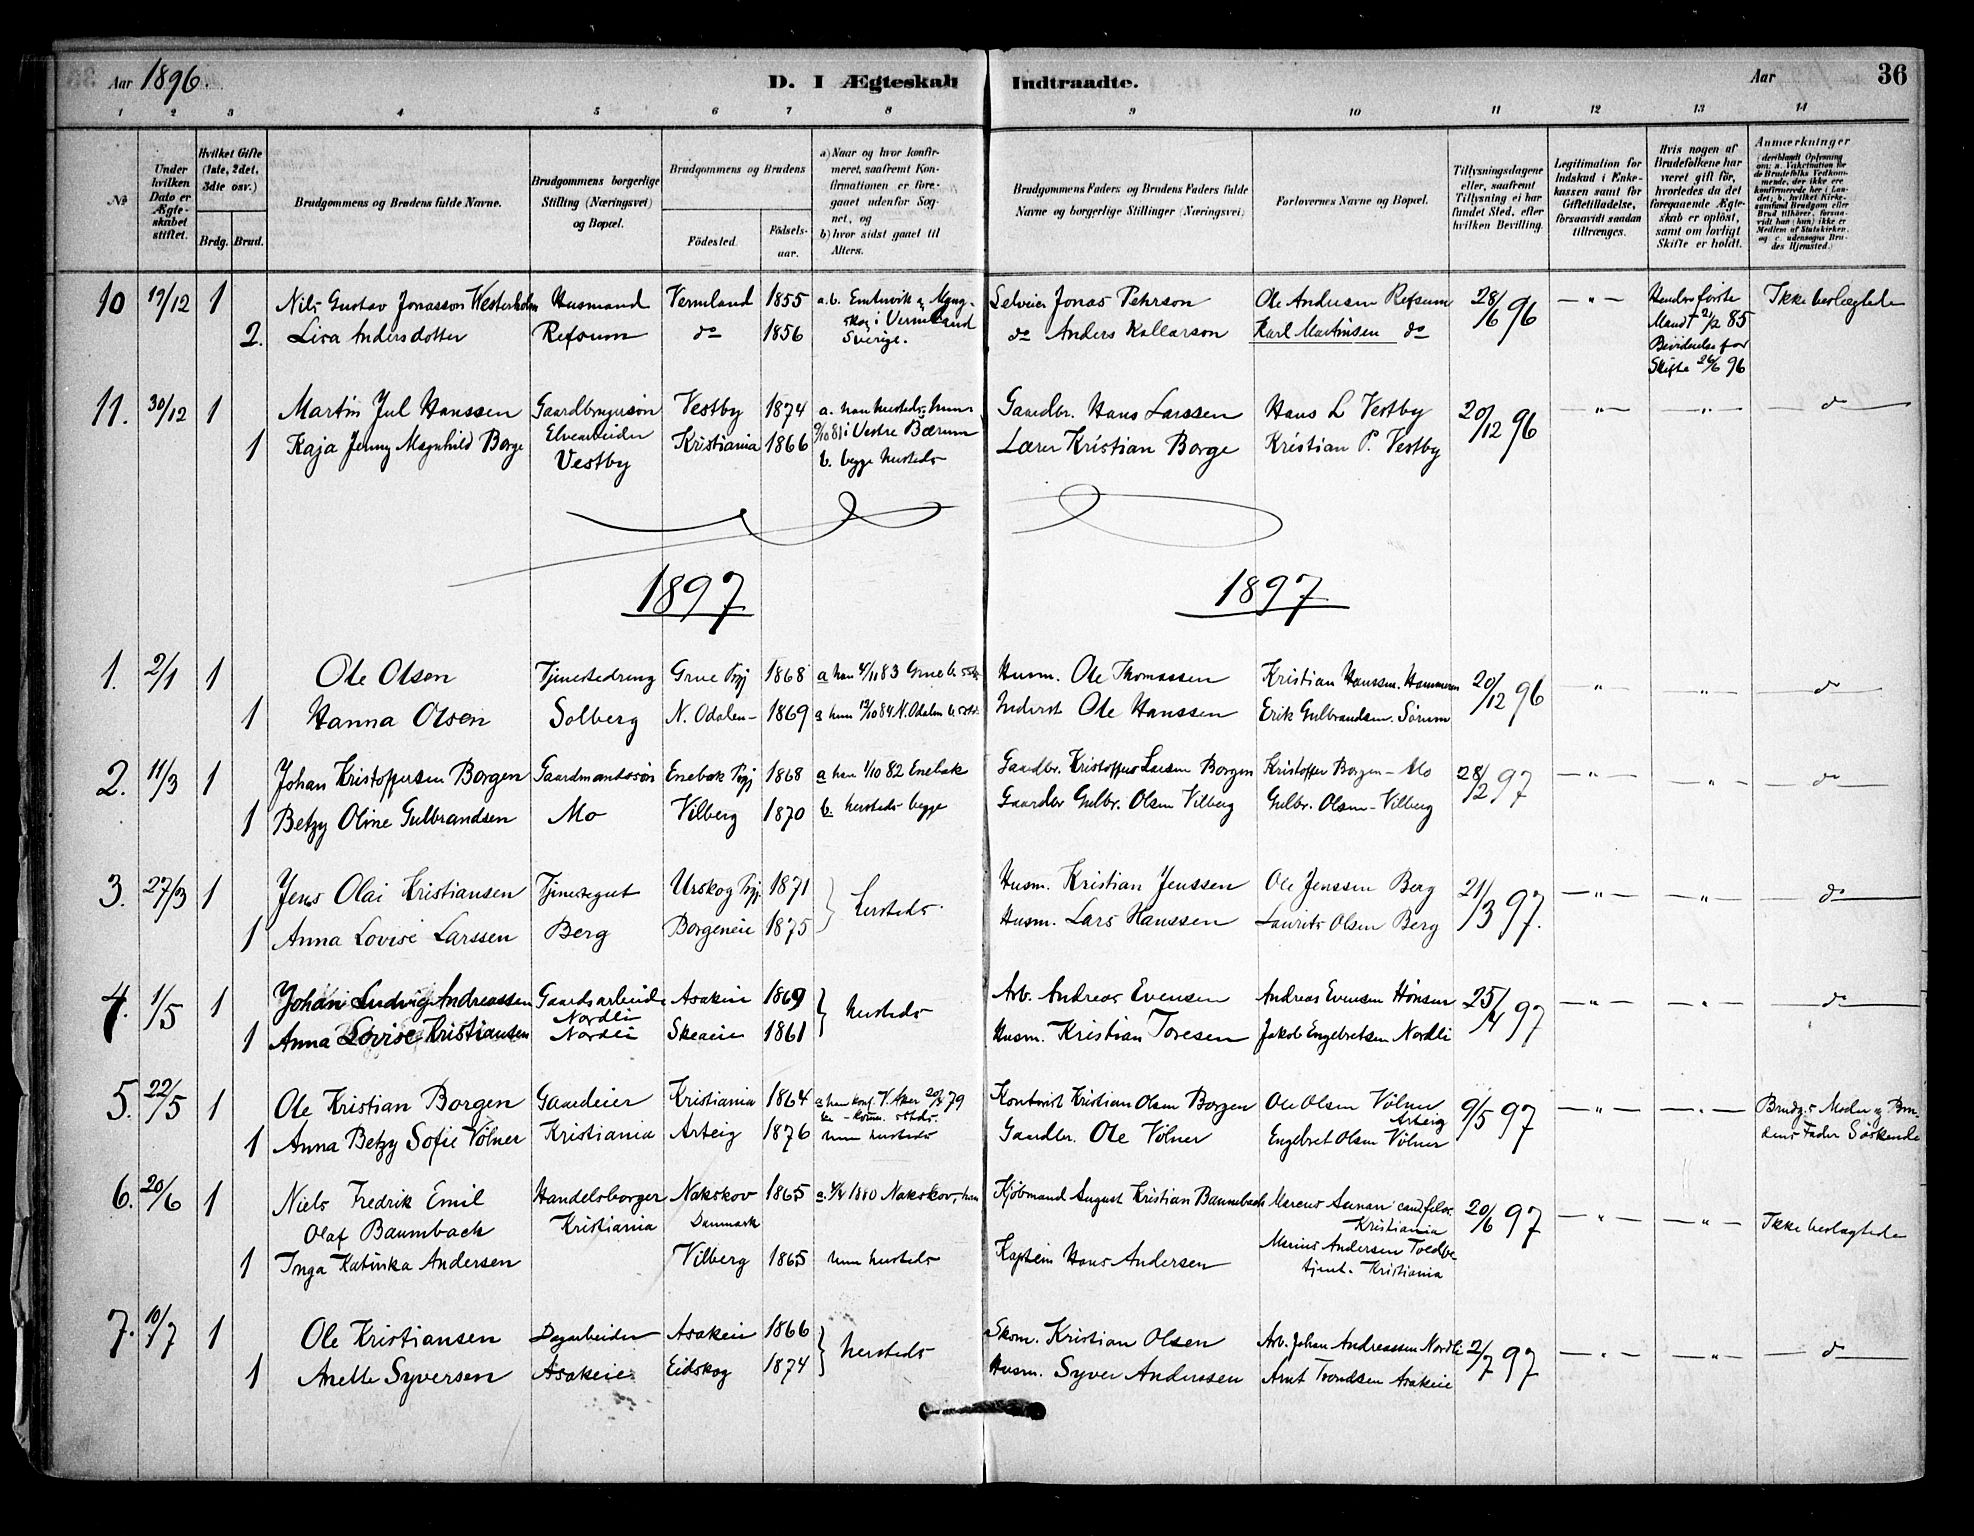 Aar 1896.
D. I Ægteskab Indtraadte.
Aar
36
1 2 3 4 5 6 7 8 9 10 11 12 13 14
№
Under hvilken Dato er Ægteskabet stiftet.
Hvilket Gifte (1ste, 2det, 3die osv.)
Brdg. Brud.
Brudgommens og Brudens fulde Navne.
Brudgommens borgerlige Stilling (Næringsvei) og Bopæl.
Brudgommens og Brudens
Fødested. Fødselsaar.
a) Naar og hvor konfirmeret, saafremt Konfirmationen er foregaaet udenfor Sognet, og
b) hvor sidst gaaet til Alters.
Brudgommens Faders og Brudens Faders fulde Navne og borgerlige Stillinger (Næringsvei)
Forlovernes Navne og Bopæl.
Tillysningsdagene eller, saafremt Tillysning ei har fundet Sted, efter hvilken Bevilling.
Legitimation for Indskud i Enkekassen samt for Giftetilladelse, forsaavidt saadan tiltrænges.
Hvis nogen af Brudefolkene har været gift før, hvorledes da det foregaaende Ægteskab er opløst, samt om lovligt Skifte er holdt.
Anmærkninger
10 19/12 1 Nils Gustav Jonasson Westerholm Husmand Vermland 1855 a.b. Emtervik og
2. Lisa Andersdotter Refsum do 1856 i Vermland Sverige.
Selveier Jonas Pehrson Ole Andersen Refsum 28/6 96 — " — Hendes første Mand † 21/2 85 Ikke beslægtede
do Anders Kallarson Karl Martinsen do Skifte 26/6 96
11. 30/12 1 Martin Jul Hanssen Gaardbrugersøn Vestby 1874 a. han hersteds, hun
1 Kaja Jenny Magnhild Borge Elvearbeider Vestby Kristiania 1866 i Vestre Bærum b. begge hersteds
Gaardbr. Hans Larssen Hans L Vestby 20/12 96 — " — — " — do
Lærer Kristian Borge Kristian P. Vestby
1897 1897
1. 2/1 1 Ole Olsen Tjenestedreng Grue Prgj 1868 a han 4/11 83 Grue
1 Hanna Olsen Solberg N. Odalen — 1869 a hun 12/10 84 N. Odalen
Husm. Ole Thomassen Kristian Hanssen. Hammeren 20/12 96 — " — — " — do
Inderst Ole Hanssen Erik Gulbrandsen. Sørum
2. 11/3 1 Johan Kristoffersen Borgen Gaardmandssøn Enebak Prgj 1868 a han 1/10 82 Enebak
1 Betzy Oline Gulbrandsen Mo Vilberg 1870 b. hersteds begge
Gaardbr. Kristoffer Larsen Borgen Kristoffer Borgen — Mo 28/2 97 — " — — " — do
Gaardbr Gulbr. Olsen Vilberg Gulbr. Olsen — Vilberg
3. 27/3 1 Jens Olai Kristiansen Tjenestegut Urskog Prgj. 1871 hersteds.
1 Anna Lovise Larssen Berg Borgeneie 1875
Husm. Kristian Jenssen Ole Jenssen Berg 21/3 97. — " — — " — do
Husm. Lars Hanssen Laurits Olsen Berg
4. 1/5 1 Johan Ludvig Andreassen Gaardsarbeider Asakeie 1869 hersteds
1 Anna Lovise Kristiansen Nordli Nordli Skeaeie 1861
Arb. Andreas Evensen Andreas Evensen Hønsen 25/4 97 — " — — " — do
Husm. Kristian Toresen Jakob Engebretsen Nordli
5. 22/5 1 Ole Kristian Borgen Gaardeier Kristiania 1864 a han konf. V. Aker 79
1 Anna Betzy Sofie Vølner Kristiania Arteig 1876 hun hersteds
Kontorist Kristian Olsen Borgen Ole Olsen Vølner Arteig 9/5 97 — " — — " — Brudg.s Moder og Brudens Fader Søskende
Gaardbr. Ole Vølner Engebret Olsen Vølner
6. 20/6 1 Niels Fredrik Emil Olaf Baumbach Handelsborger Kristiania Nakskov Danmark 1865 1880 Nakskov, han
1 Inga Katinka Andersen Vilberg 1865 hun hersteds
Kjøbmand August Kristian Baumbach Marcus Aunan cand filos. Kristiania 20/6 97 — " — — " — Ikke beslægtede
Kaptein Hans Andersen Marius Andersen Toldbetjent. Kristiania
7. 10/7 1 Ole Kristiansen Dagarbeider Asakeie 1866 hersteds
1 Anette Syversen Asakeie Eidskog 1874
Skom. Kristian Olsen Arb. Johan Andreassen Nordli 2/7 97 — " — — " — do
Husm. Syver Anderssen Arnt Trondsen Asakeie